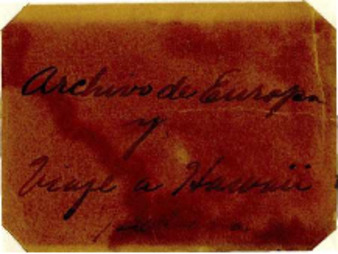 Archivo de Europa
y
Viaje a Hawaii